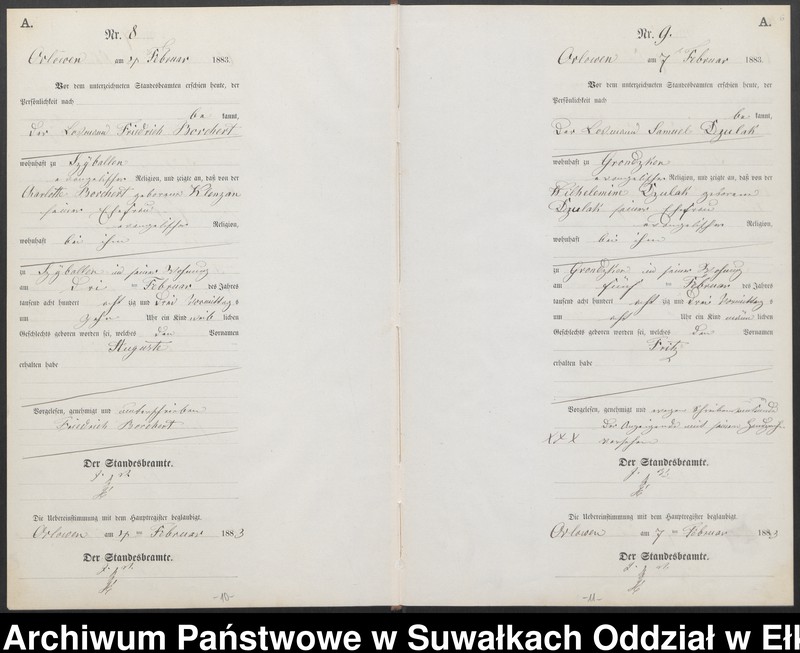 A.
Nr. 8
Orlowen am 4 Februar 1883.
Vor dem unterzeichneten Standesbeamten erschien heute, der
Persönlichkeit nach
be kannt,
Der Losmann Friedrich Borchert
wohnhaft zu Czyballen
evangelischer Religion, und zeigte an, daß von der
Charlotte Borchert geborene Klenzan
seiner Ehefrau
evangelischer Religion,
wohnhaft bei ihm
zu Czyballen in seiner Wohnung
am Drei ten Februar des Jahres
tausend acht hundert acht zig und drei Vormittag s
um zehn Uhr ein Kind weib lichen
Geschlechts geboren worden sei, welches den Vornamen
Auguste
erhalten habe
Vorgelesen, genehmigt und unterschrieben
Friedrich Borchert
Der Standesbeamte.
Die Uebereinstimmung mit dem Hauptregister beglaubigt.
Orlowen am 4 ten Februar 1883
Der Standesbeamte.
-10-
A.
Nr. 9.
Orlowen am 7 Februar 1883.
Vor dem unterzeichneten Standesbeamten erschien heute, der
Persönlichkeit nach
be kannt,
Der Losmann Samuel Dzulak
wohnhaft zu Grondzken
evangelischer Religion, und zeigte an, daß von der
Wilhelmine Dzulak geborene
Dzulak seiner Ehefrau
evangelischer Religion,
wohnhaft bei ihm
zu Grondzken in seiner Wohnung
am fünf ten Februar des Jahres
tausend acht hundert acht zig und drei Vormittag s
um acht Uhr ein Kind männ lichen
Geschlechts geboren worden sei, welches den Vornamen
Fritz
erhalten habe
Vorgelesen, genehmigt und wegen Schreibensunkunde
des Anzeigenden mit seinem Handzeichen
XXX versehen
Der Standesbeamte.
Die Uebereinstimmung mit dem Hauptregister beglaubigt.
Orlowen am 7 ten Februar 1883
Der Standesbeamte.
-11-
Archiwum Państwowe w Suwałkach Oddział w Ełk